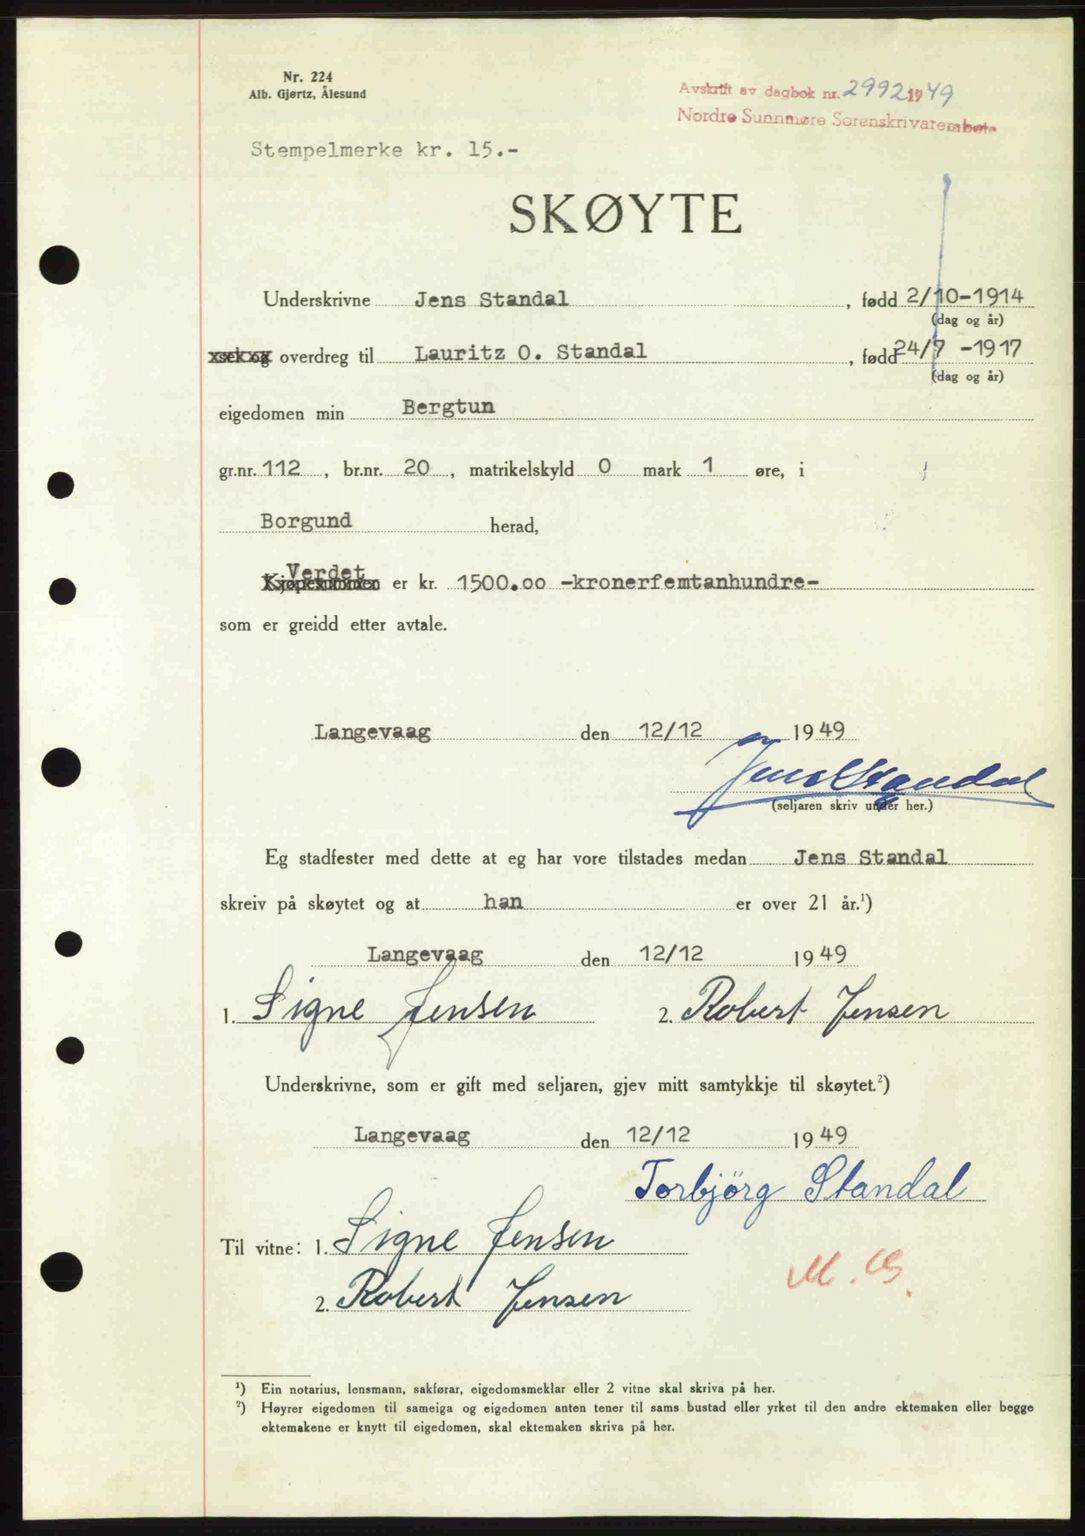 Nr. 224
Alb. Gjørtz, Ålesund
Avskrift av dagbok nr. 2992 1949
Nordre Sunnmøre Sorenskrivarembete
Stempelmerke kr. 15.-
SKØYTE
Underskrivne Jens Standal , fødd 2/10-1914
(dag og år)
overdreg til Lauritz O. Standal , fødd 24/7 -1917
(dag og år)
eigedomen min Bergtun
gr.nr. 112 , br.nr. 20 , matrikelskyld 0 mark 1 øre, i
Borgund herad,
Verdet
Kjøpesummen er kr. 1500.00 -kronerfemtanhundre-
som er greidd etter avtale.
Langevaag den 12/12 1949
Jens Standal
(seljaren skriv under her.)
Eg stadfester med dette at eg har vore tilstades medan Jens Standal
skreiv på skøytet og at han er over 21 år.¹)
Langevaag den 12/12 1949
1. Signe Jensen 2. Robert Jensen
Underskrivne, som er gift med seljaren, gjev mitt samtykkje til skøytet.²)
Langevaag den 12/12 1949
Torbjörg Standal
Til vitne: 1. Signe Jensen
2. Robert Jensen
¹) Ein notarius, lensmann, sakførar, eigedomsmeklar eller 2 vitne skal skriva på her.
²) Høyrer eigedomen til sameiga og eigedomen anten tener til sams bustad eller yrket til den andre ektemaken eller begge
ektemakene er knytt til eigedomen, skal ektemaken skriva på her.